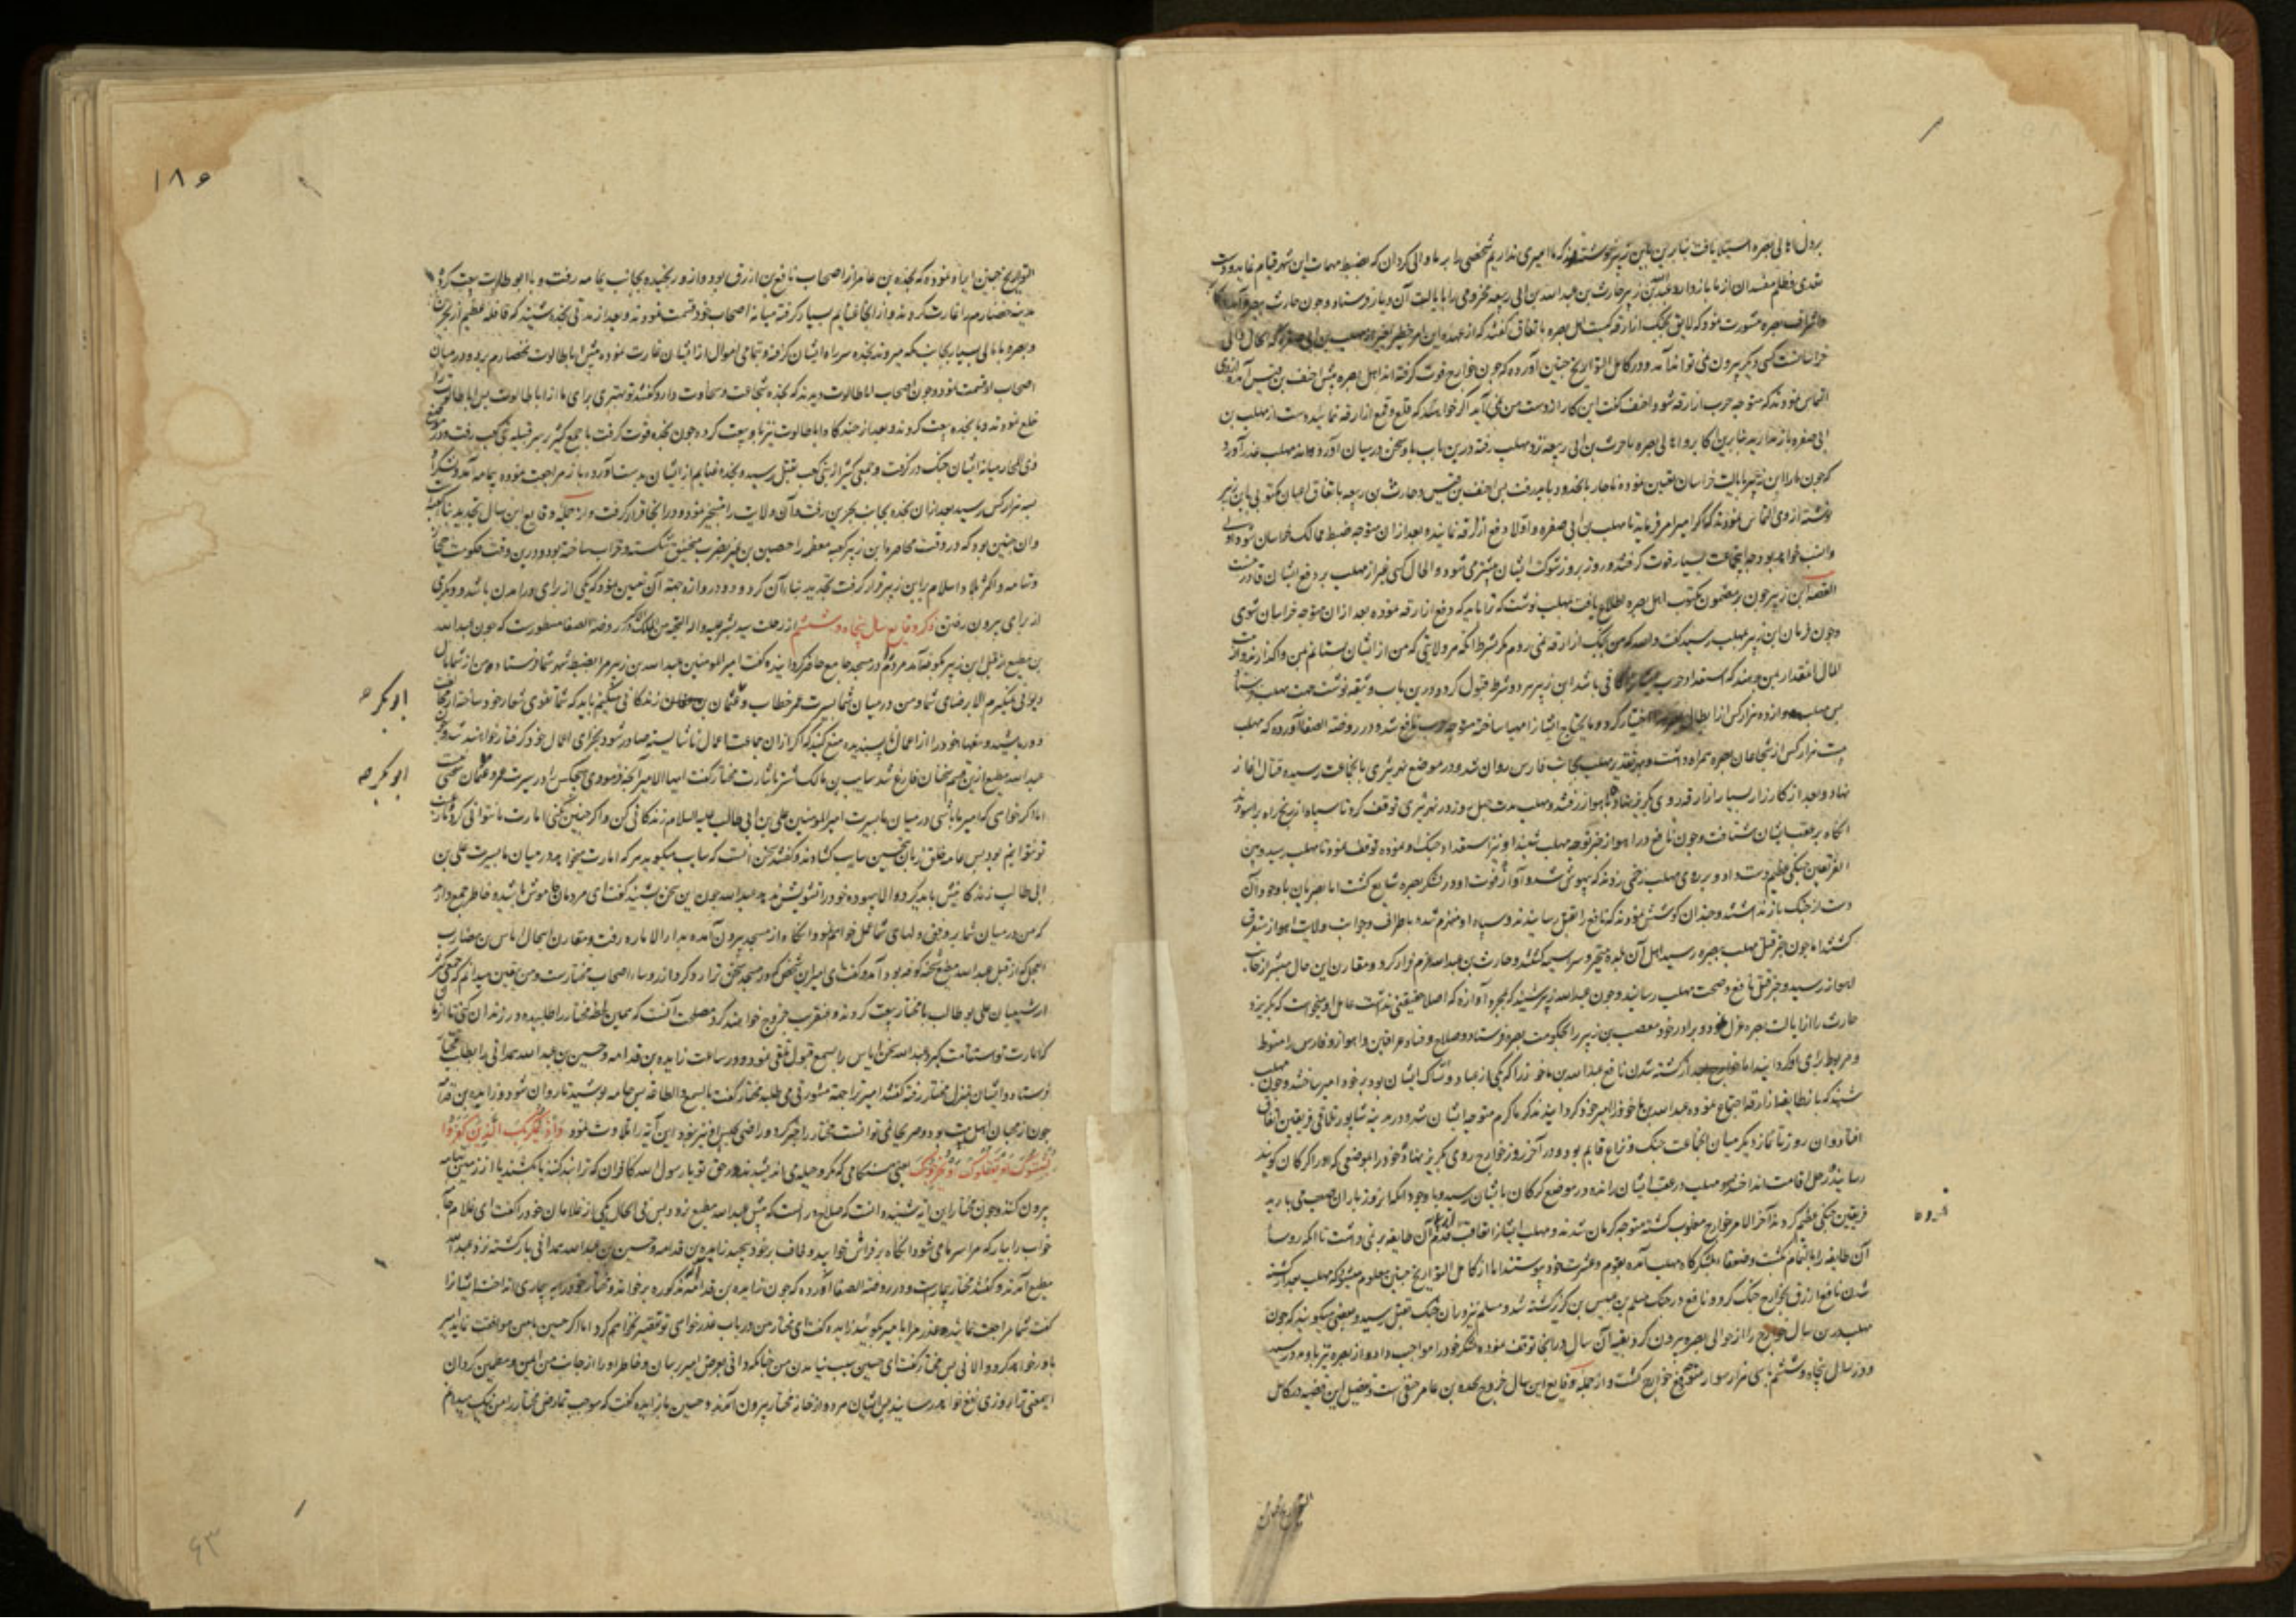 بر دل اهالی بصره استیلا یافت بنابرین باین زبیر نوشتند که ما امیری نداریم شخصی را بر ما والی کردان که بضبط مهمات این شهر قیام نماید و دست
تعدی و ظلم مفسدان از ما باز دارد عبدالله بن زبیر حارث بن عبدالله بن ابی ربیعه مخزومی را بایالت آن دیار فرستاد و چون حارث ببصره
اشراف بصره مشورت نمود که لایق بجنک ازارقه کیست اهل بصره باتفاق کفتند که از عهده این امر خطیر بغیر از مهلب بن ابی صفره که الحال والی
خراسانست کسی دیکر بیرون نمی تواند آمد و در کامل التواریخ چنین آورده که چون خوارج قوت کرفته اند اهل بصره پیش احنف بن قیس آمده
التماس نمودند که متوجه حرب ازارقه شود احنف کفت این کار از دست من نمی آید اکر خواهید که قلع و قمع ازارقه نمایید دست از مهلب بن
ابی صفره باز ندارید بنابرین اکابر و اهالی بصره با حرث بن ابی ربیعه نزد مهلب رفته درین باب با وی سخن در میان آوردند مهلب عذر آورد
که چون مرا ابن زبیر بایالت خراسان تعیین نموده ناچار بانحدود باید رفت پس احنف بن قیس و حارث بن ربیعه باتفاق اعیان مکتوبی باین زبیر
نوشته از وی التماس نمودند که اکر امیر امر فرماید تا مهلب بن ابی صفره اولا دفع ازارقه نماید و بعد از ان متوجه ضبط ممالک خراسان شود اولی
وانسب خواهد بود چه انجماعت بسیار قوت کرفتند و روز بروز شوکت ایشان بیشتر می شود و الحال کسی غیر از مهلب بر دفع ایشان قادر نیست
القصه ابن زبیر چون بر مضمون مکتوب اهل بصره اطلاع یافت بمهلب نوشت که ترا باید که دفع ازارقه نموده بعد از ان متوجه خراسان شوی
و چون فرمان ابن زبیر بمهلب رسید کفت والله که من بجنک ازارقه نمی روم مکر بشرط انکه هر ولایتی که من از ایشان بستانم بمن واکذارند و از بیت
المال انقدر بمن دهند که استعداد حرب کافی باشد ابن زبیر هر دو شرط قبول کرد و درین باب وثیقه نوشت جهت مهلب فرستاد
پس مهلب دوازده هزار کس از ابطال بصره اختیار کرد و مایحتاج ایشان را مهیا ساخته متوجه حرب نافع شد و در روضة الصفا آورده که مهلب
بیست هزار کس از شجاعان بصره همراه داشت و بهر تقدیر مهلب بجانب فارس روان شد و در موضع نهر تیری بانجماعت رسیده قتال اغاز
نهاد و بعد از کارزار بسیار ازارقه روی بکریز نهاد تا باهواز رفتند و مهلب مدت چهل روز در نهر تیری توقف کرد تا سپاه از رنج راه براسودند
انکاه بر عقب ایشان شتافت و چون نافع در اهواز خبر توجه مهلب شنید او نیز استعداد جنک او نموده توقف نمود تا مهلب رسید و بین
الفریقین جنکی عظیم دست داد و بر روی مهلب زخمی زدند که بیهوش شد و آوازه فوت او در لشکر بصره شایع کشت اما بصریان با وجود آن
دست از جنک باز نداشتند و چندان کوشش نمودند که نافع را بقتل رسانیدند و سپاه او منهزم شده باطراف و جوانب ولایت اهواز متفرق
کشتند اما چون خبر قتل مهلب ببصره رسید اهل آن بلده متحیر و سراسیمه کشتند و حارث بن عبدالله عزم فرار کرد و مقارن این حال مبشر از جانب
اهواز رسید و خبر قتل نافع و صحت مهلب رسانید و چون عبدالله زبیر شنید که بمجرد آوازه که اصلا حقیقتی نداشت عامل او میخواست که بکریزد
حارث را از ایالت بصره عزل نمود و برادر خود مصعب بن زبیر را بحکومت بصره فرستاد و صلاح و فساد عراقین و اهواز و فارس را منوط
و مربوط برای او کردانید اما خوارج بعد از کشته شدن نافع عبدالله بن ماخوذ را که یکی از عباد و نساک ایشان بود بر خود امیر ساختند و چون مهلب
شنید که باز طایفه ازارقه اجتماع نموده عبدالله بن ماخوذ را امیر خود کردانیدند کرماکرم متوجه ایشان شد و در مدینه شاپور تلاقی فریقین اتفاق
افتاد و ان روز تا نماز دیکر میان انجماعت جنک و نزاع قایم بود و در آخر روز خوارج روی بکریز نهاد و خود را بموضعی که اورا کرکان کویند
رسانیدند و رحل اقامت انداختند و مهلب در عقب ایشان رانده در موضع کرکان بایشان رسید و با وجود انکه انروز باران صعب می بارید
فریقین جنکی عظیم کردند آخر الامر خوارج مغلوب کشته متوجه کرمان شدند و مهلب ایشانرا تعاقب آن طایفه برنمی داشت تا انکه روسا
آن طایفه را بالتمام کشت و ضعفا بلشکر کاه مهلب آمده بقوم و عشیرت خود پیوستند اما از کامل التواریخ چنین معلوم میشود که مهلب بعد از کشته
شدن نافع ازرق بخوارج جنک کرد و نافع در جنک مسلم بن عبیس بن کریز کشته شد و مسلم نیز در ان جنک بقتل رسید و بعضی میکویند که چون
مهلب درین سال خوارج را از حوالی بصره بیرون کرد بقیه آن سال در انجا توقف نموده لشکر خود را مواجب داد و از بصره نیز باو مدد رسید
و در سال پنجاه و ششم با سی هزار سوار متوجه دفع خوارج کشت و از جمله وقایع این سال خروج نجده بن عامر حنفی است و تفصیل این قضیه در کامل
التواریخ چنین
۱۸۶
التواریخ چنین ایراد نموده که نجده بن عامر از اصحاب نافع بن ازرق بود و از و رنجیده بجانب یمامه رفت و با ابو طالوت بیعت کرد
مدینه حضارم را غارت کردند و از انجا غنایم بسیار کرفته میانه اصحاب خود قسمت نمودند و بعد از مدتی نجده شنید که قافله عظیم از بحرین
و بصره با مالی بسیار بجانب مکه میروند نجده سر راه ایشان کرفته و تمامی اموال از ایشان غارت نموده پیش ابا طالوت بحضارم برد و در میان
اصحاب او قسمت نمود و چون اصحاب ابا طالوت دیدند که نجده شجاعت و سخاوت دارد کفتند تو بهتری برای ما از ابا طالوت پس ابا طالوت را
خلع نمودند و با نجده بیعت کردند و بعد از چند کاه ابا طالوت نیز باو بیعت کرد و چون نجده قوت کرفت با جمع کثیر بر سر قبیله بنی کعب رفت و در موضع
ذی المجاز میانه ایشان جنک در کرفت و جمعی کثیر از بنی کعب بقتل رسید و نجده غنایم از ایشان بدست آورده باز مراجعت نموده بیمامه آمد و لشکر او
بسه هزار کس رسید بعد از ان نجده بجانب بحرین رفت و آن ولایت را مسخر نموده در انجا قرار کرفت و از جمله وقایع این سال تجدید بناء کعبه
و ان چنین بود که در وقت محاصره ابن زبیر کعبه معظمه را حصین بن نمیر بضرب منجنیق شکسته و خراب ساخته بود و درین وقت حکومت حجاز
و تهامه و اکثر بلاد اسلام بر ابن زبیر قرار کرفت تجدید بناء آن کرد و دو دروازه جهة آن تعیین نمود که یکی از برای در امدن باشد و دیکری
از برای بیرون رفتن ذکر وقایع سال پنجاه و ششم از رحلت سید بشر علیه واله التحیه من الملک الاکبر در روضة الصفا مسطورست که چون عبدالله
بن مطیع از قبل ابن زبیر بکوفه آمد مردم را در مسجد جامع حاضر کردانیده کفت امیرالمومنین عبدالله بن زبیر مرا بضبط شهر شما فرستاده و من از شما مال
دیوانی نمیکیرم الا برضای شما و من در میان شما بسیرت عمر خطاب و عثمان بن عفان زندکانی میکنم باید که شما تقوی شعار خود ساخته از مخالفت
ابو بکر صح
دور باشید و سفهاء خود را از اعمال ناپسندیده منع کنید که اکر از ان جماعت اعمال ناشایسته صادر شود بجزای اعمال خود کرفتار خواهند شد و چون
عبدالله مطیع ازین قسم سخنان فارغ شد سایب بن مالک اشتر باشارت مختار کفت ایها الامیر آنچه فرمودی هیچکس را در سیرت عمر و عثمان سخنی نیست
ابو بکر صح
اما اکر خواهی که امیر ما باشی در میان ما بسیرت امیرالمومنین علی بن ابی طالب علیه السلام زندکانی کن و اکر چنین نکنی امارت ما نتوانی کرد و ما از
تو نخواهیم بود پس عامه خلق زبان بتحسین سایب کشادند و کفتند سخن انست که سایب میکوید هر که امارت میخواهد در میان ما بسیرت علی بن
ابی طالب زندکانیش باید کرد والا بیهوده خود را تشویش ندهد عبدالله چون این سخن بشنید کفت ای مردمان خاموش باشید و خاطر جمع دارید
که من در میان شما بر وفق دلهای شما عمل خواهم نمود و انکاه از مسجد بیرون آمده بدار الاماره رفت و مقارن اینحال ایاس بن مضارب
العجلی که از قبل عبدالله مطیع شحنه کوفه بود آمد و کفت ای امیر این شخص که در مسجد سخن ترا رد کرد از روساء اصحاب مختارست و من یقین میدانم که جمعی کثیر
از شیعیان علی بو طالب با مختار بیعت کردند و عنقریب خروج خواهند کرد مصلحت آنست که همین لحظه مختار را طلبیده در زندان کنی تا از ان
که امارت تو استقامت کیرد عبدالله سخن ایاس را بسمع قبول تلقی نمود و در ساعت زایده بن قدامه و حسین بن عبدالله همدانی را بطلب مختار
فرستاد و ایشان بمنزل مختار رفته کفتند امیر ترا جهة مشورتی می طلبد مختار کفت بالسمع والطاعه پس جامه پوشید تا روان شود و زایده بن قدامه
چون از محبان اهل بیت بود و صریحا نمی توانست مختار را خبر کرد و راضی بحبس او نیز نبود این آیه را تلاوت نمود وَإِذْ يَمْكُرُ بِكَ الَّذِينَ كَفَرُوا
لِيُثْبِتُوكَ أَوْ يَقْتُلُوكَ أَوْ يُخْرِجُوكَ یعنی هنکامی که مکر و حیله می اندیشیدند در حق تو یا رسول الله کافران که ترا بند کنند یا بکشند یا از زمین مکه
بیرون کنند و چون مختار این آیه شنید دانست که صلاح در انست که پیش عبدالله مطیع نرود پس فی الحال یکی از غلامان خود را کفت ای غلام جامه
خواب را بیار که مرا سرما می شود و انکاه بر فراش خوابید و لحاف بر خود پیچید زایده بن قدامه و حسین بن عبدالله همدانی بازکشته نزد عبدالله
مطیع آمدند و کفتند مختار بیمارست و در روضة الصفا آورده که چون زایده بن قدامه آیه مذکوره بر خواند و مختار خود را بر بیماری انداخت ایشانرا
کفت شما مراجعت نمایید و عذر مرا با امیر بکویید زایده کفت ای مختار من در باب عذر خواهی تو تقصیر نخواهم کرد اما اکر حسین با من موافقت نماید امیر
باور خواهد کرد والا نی پس مختار کفت ای حسین سبب نیامدن من چنانکه دانی بعرض امیر رسان و خاطر او را از جانب من امین و مطمین کردان
اینمعنی ترا روزی نفع خواهد رسانید پس ایشان هر دو از خانه مختار بیرون آمدند و حسین با زایده کفت که موجب تمارض مختار را من نیک میدانم
۶۳